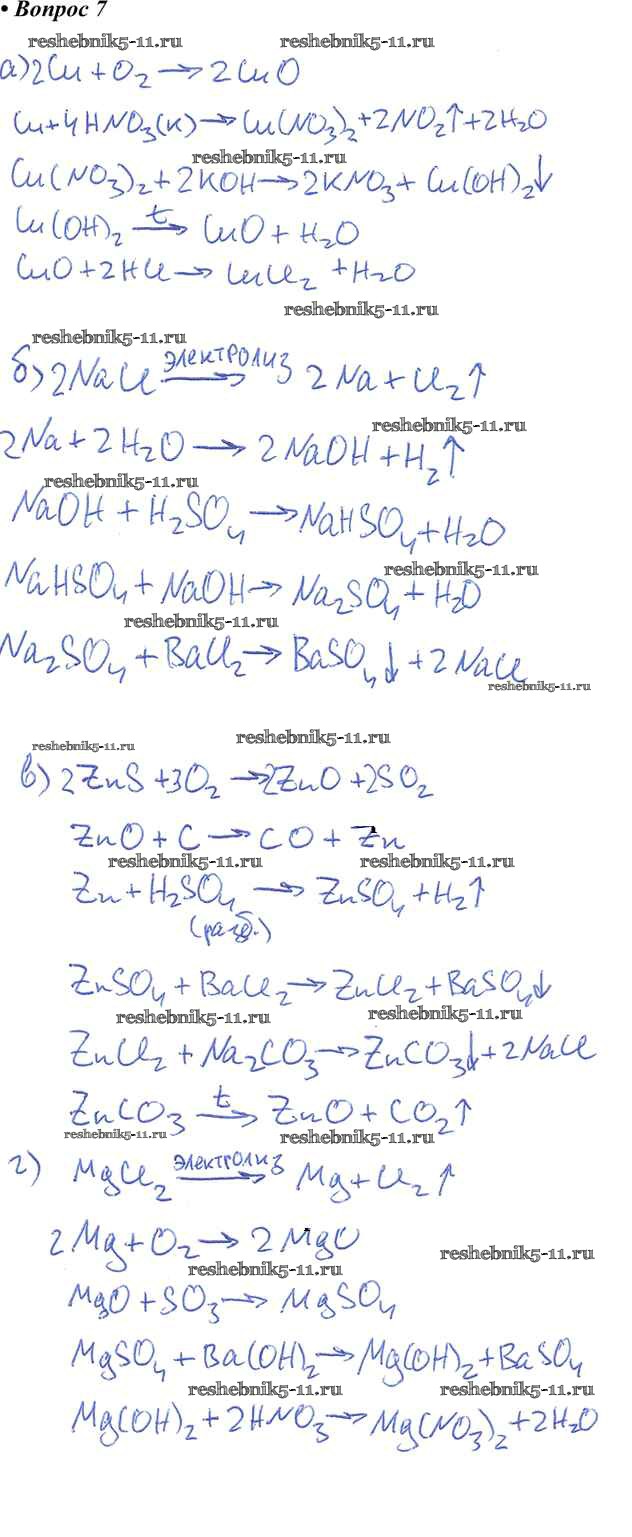 • Вопрос 7
reshebnik5-11.ru reshebnik5-11.ru
а) 2Cu + O₂ → 2CuO
Cu + 4HNO₃(к) → Cu(NO₃)₂ + 2NO₂↑ + 2H₂O
reshebnik5-11.ru
Cu(NO₃)₂ + 2KOH → 2KNO₃ + Cu(OH)₂↓
Cu(OH)₂ →t CuO + H₂O
CuO + 2HCl → CuCl₂ + H₂O
reshebnik5-11.ru
reshebnik5-11.ru
б) 2NaCl →электролиз 2Na + Cl₂↑
reshebnik5-11.ru
2Na + 2H₂O → 2NaOH + H₂↑
reshebnik5-11.ru
NaOH + H₂SO₄ → NaHSO₄ + H₂O
reshebnik5-11.ru
NaHSO₄ + NaOH → Na₂SO₄ + H₂O
reshebnik5-11.ru
Na₂SO₄ + BaCl₂ → BaSO₄↓ + 2NaCl
reshebnik5-11.ru
reshebnik5-11.ru
reshebnik5-11.ru
в) 2ZnS + 3O₂ → 2ZnO + 2SO₂
ZnO + C → CO + Zn
reshebnik5-11.ru reshebnik5-11.ru
Zn + H₂SO₄ → ZnSO₄ + H₂↑
(разб.)
ZnSO₄ + BaCl₂ → ZnCl₂ + BaSO₄↓
reshebnik5-11.ru reshebnik5-11.ru
ZnCl₂ + Na₂CO₃ → ZnCO₃↓ + 2NaCl
ZnCO₃ →t ZnO + CO₂↑
reshebnik5-11.ru reshebnik5-11.ru
г) MgCl₂ →электролиз Mg + Cl₂↑
2Mg + O₂ → 2MgO
reshebnik5-11.ru
reshebnik5-11.ru
MgO + SO₃ → MgSO₄
MgSO₄ + Ba(OH)₂ → Mg(OH)₂ + BaSO₄
reshebnik5-11.ru reshebnik5-11.ru
Mg(OH)₂ + 2HNO₃ → Mg(NO₃)₂ + 2H₂O